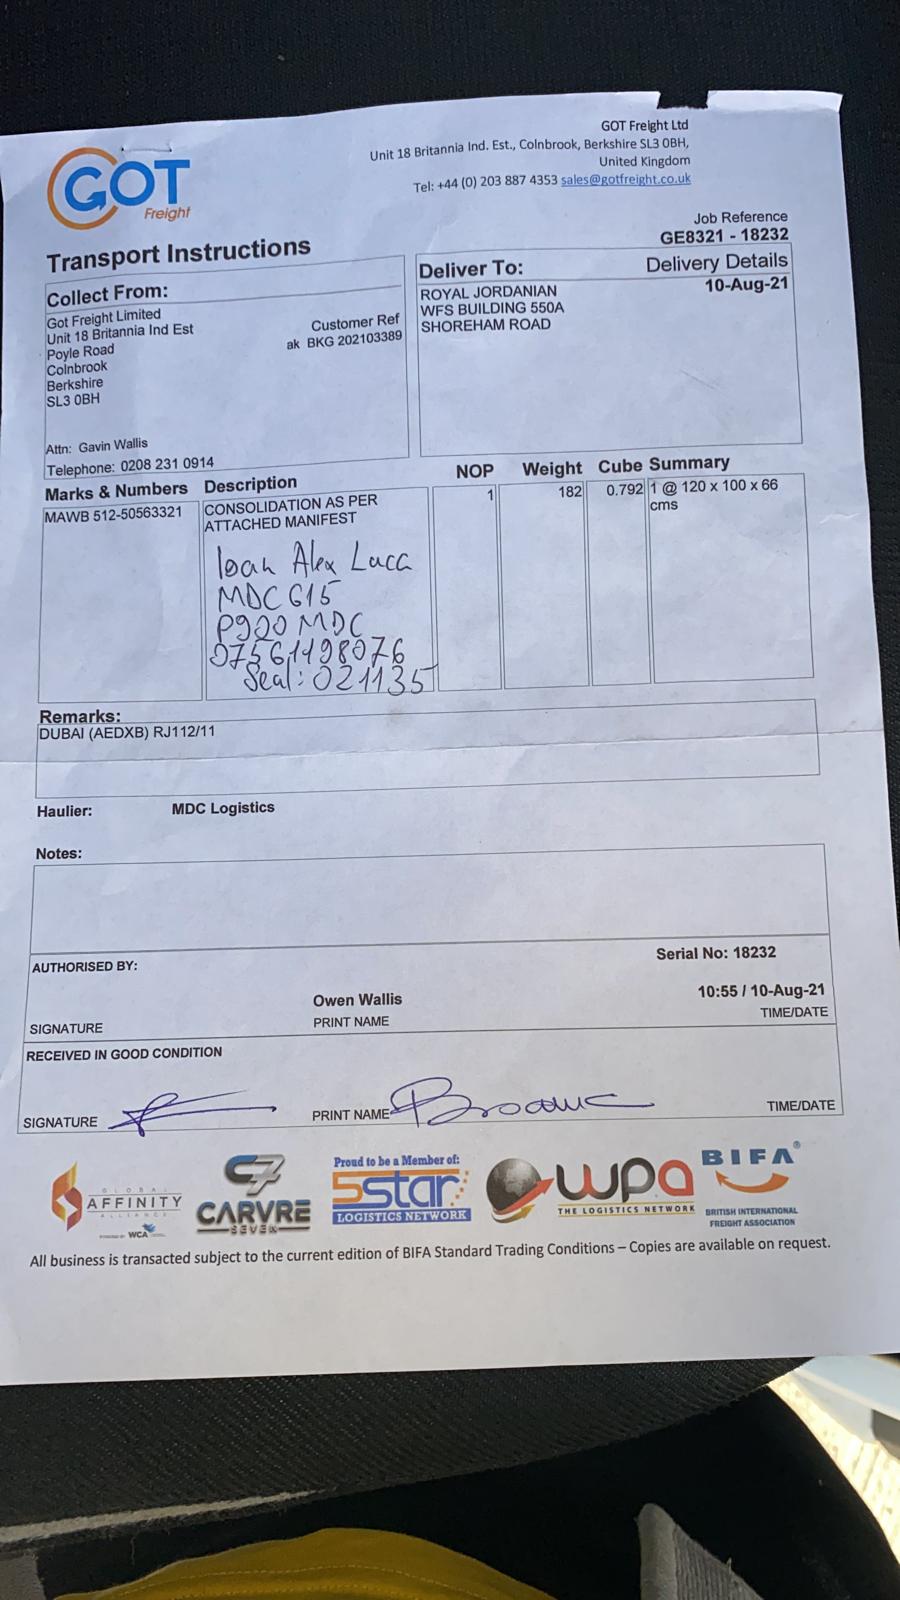 GOT
Freight
GOT Freight Ltd
Unit 18 Britannia Ind. Est., Colnbrook, Berkshire SL3 0BH,
United Kingdom
Tel: +44 (0) 203 887 4353 sales@gotfreight.co.uk
Job Reference
GE8321 - 18232
Transport Instructions
Collect From:
Got Freight Limited
Unit 18 Britannia Ind Est
Poyle Road
Colnbrook
Berkshire
SL3 0BH
Customer Ref
ak BKG 202103389
Attn: Gavin Wallis
Telephone: 0208 231 0914
Deliver To:
Delivery Details
10-Aug-21
ROYAL JORDANIAN
WFS BUILDING 550A
SHOREHAM ROAD
Marks & Numbers Description NOP Weight Cube Summary
MAWB 512-50563321
CONSOLIDATION AS PER
ATTACHED MANIFEST
1 182 0.792 1 @ 120 x 100 x 66
cms
Ioan Alex Luca
MDC G15
P920 MDC
07561498076
Seal: 021135
Remarks:
DUBAI (AEDXB) RJ112/11
Haulier: MDC Logistics
Notes:
AUTHORISED BY:
Serial No: 18232
Owen Wallis
10:55 / 10-Aug-21
SIGNATURE PRINT NAME TIME/DATE
RECEIVED IN GOOD CONDITION
SIGNATURE PRINT NAME TIME/DATE
GLOBAL
AFFINITY
ALLIANCE
POWERED BY WCA
C7
CARVRE
SEVEN
Proud to be a Member of:
5star
LOGISTICS NETWORK
wpa
THE LOGISTICS NETWORK
BIFA®
BRITISH INTERNATIONAL
FREIGHT ASSOCIATION
All business is transacted subject to the current edition of BIFA Standard Trading Conditions – Copies are available on request.